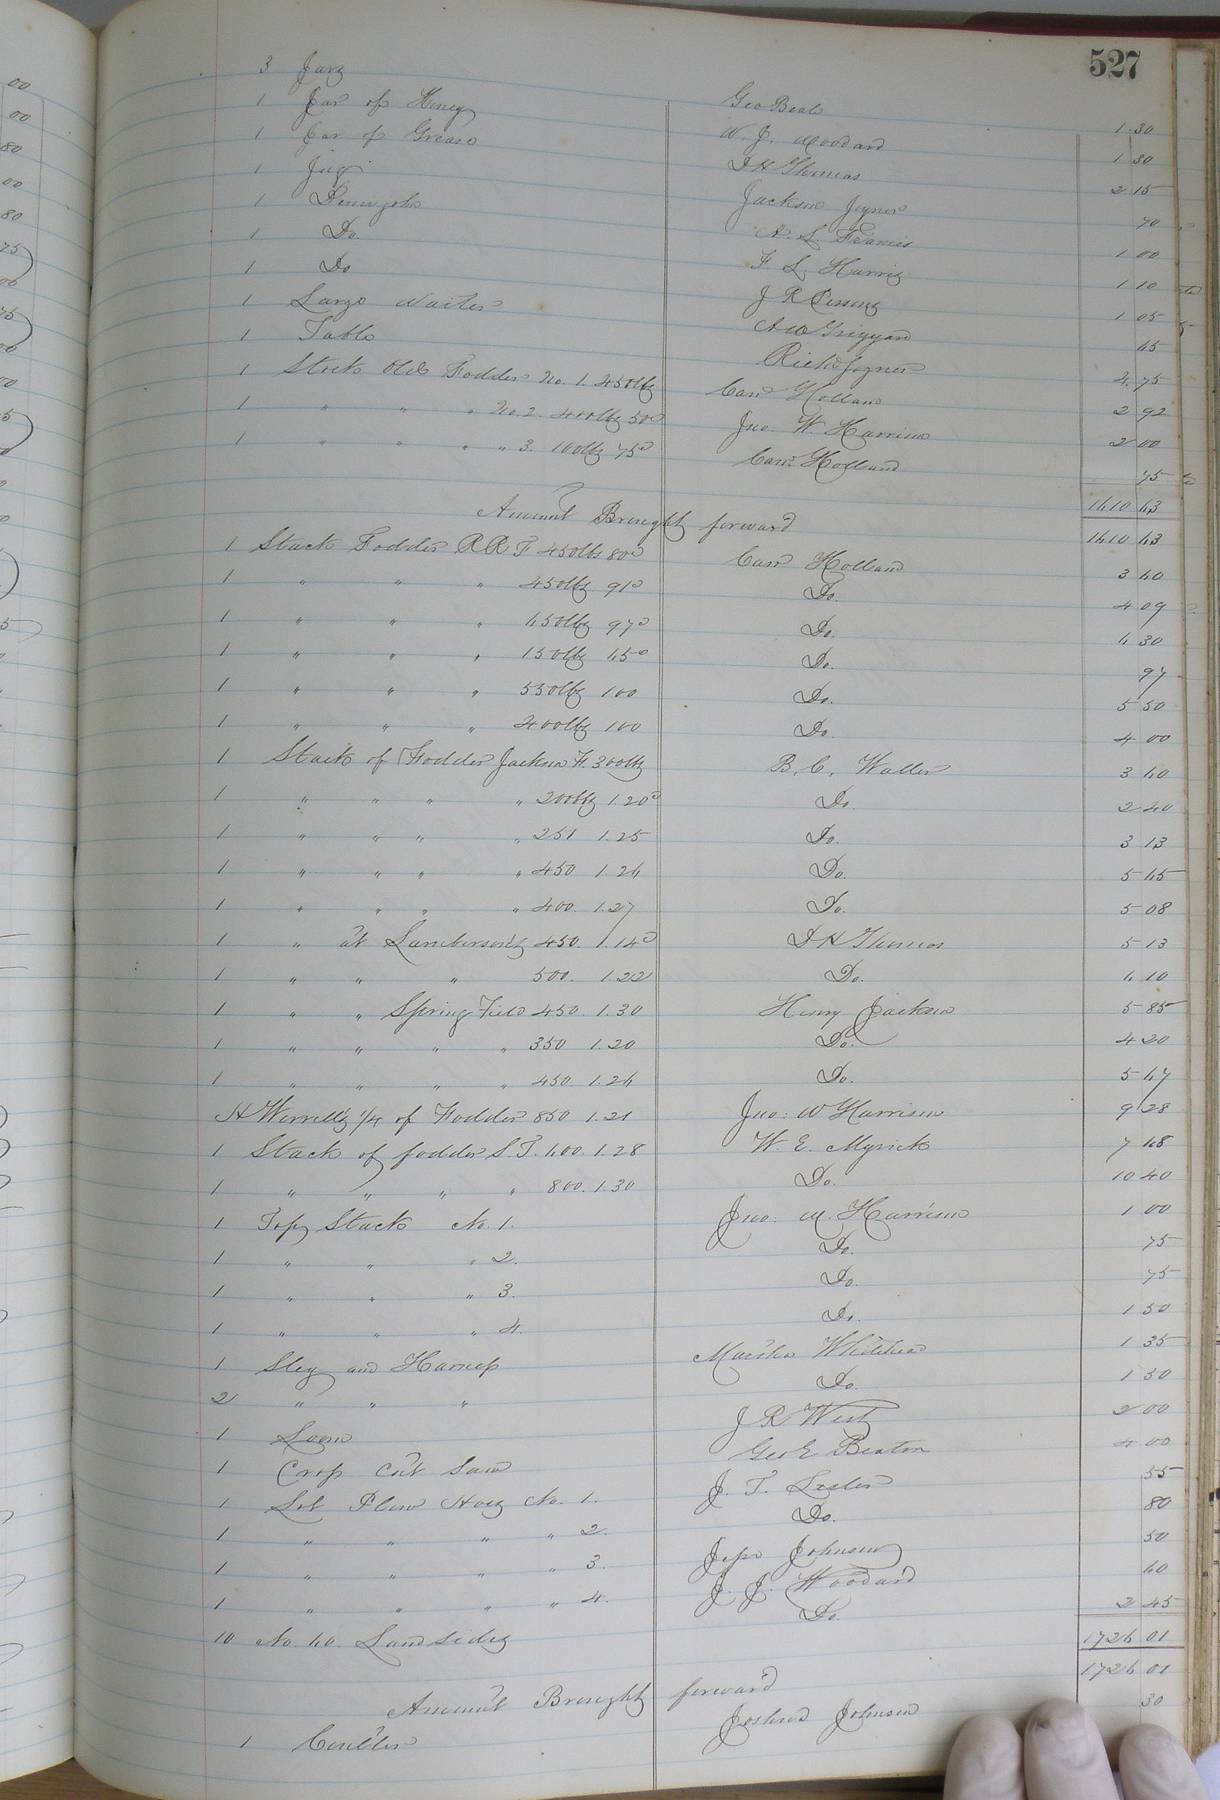 527
3 Jars Geo Beale 1.30
1 Jar of Honey W. J. Woodard 1 30
1 Jar of Grease D H Thomas 2 15
1 Jug Jackson Joyner 70
1 Demijohn 1 00
1 Do. F L Harris 1 10
1 Do J R 1 05
1 Large Waiter
1 Table Richd Joyner 4.75
1 Stack Old Fodder No. 1 450lbs Carr Holland 2 92
1 " " " No. 2 400lbs 50c Jno. W Harrison 2 00
1 " " " " 3. 100lbs 75c Carr Holland 75
1610 63
Amount Brought forward 1610 63
1 Stack Fodder R R F 450lbs 80c Carr Holland 3 60
1 " " " 450lbs 91c Do. 4 09
1 " " " 450lbs 97c Do. 4 30
1 " " " 150lbs 65c Do. 97
1 " " " 550lbs 100 Do. 5 50
1 " " " 400lbs 100 Do. 4 00
1 Stack of Fodder Jackson F. 300lbs B. C. Waller 3 60
1 " " " " 200lbs 1.20c Do. 2 40
1 " " " " 251 1.25 Do. 3 13
1 " " " " 450 1.26 Do. 5 65
1 " " " " 400. 1.27 Do. 5 08
1 " at 450. 1.14c D H Thomas 5 13
1 " " " 500. 1.22 Do. 6 10
1 " " Spring Field 450. 1.30 Henry Jackson 5 85
1 " " " " 350 1.20 Do. 4 20
1 " " " " 450. 1.26 Do. 5 67
H Worrell's 1/4 of Fodder 850 1.21 Jno: W Harrison 9 28
1 Stack of fodder S. F. 600. 1.28 W. E. Myrick 7 68
1 " " " " 800. 1.30 Do. 10 40
1 Top Stack No. 1. Jno: W. Harrison 1 00
1 " " " 2. Do. 75
1 " " " 3. Do. 75
1 " " " 4. Do. 1 50
1 Sley and Harness Martha Whitehead 1 35
2 " " " Do. 1 50
1 Loom J R West 2 00
1 Crop Cut Saw Geo E Beaton 4 00
1 Lot Plow Hoes No. 1. J. T. Lester 55
1 " " " " 2. Do. 80
1 " " " " 3. Jesse Johnson 50
1 " " " " 4. J. J. Woodard 60
10 No. 60. Landsides Do. 2 45
1726 01
Amount Brought forward 1726 01
1 Coulter Joshua Johnson 30